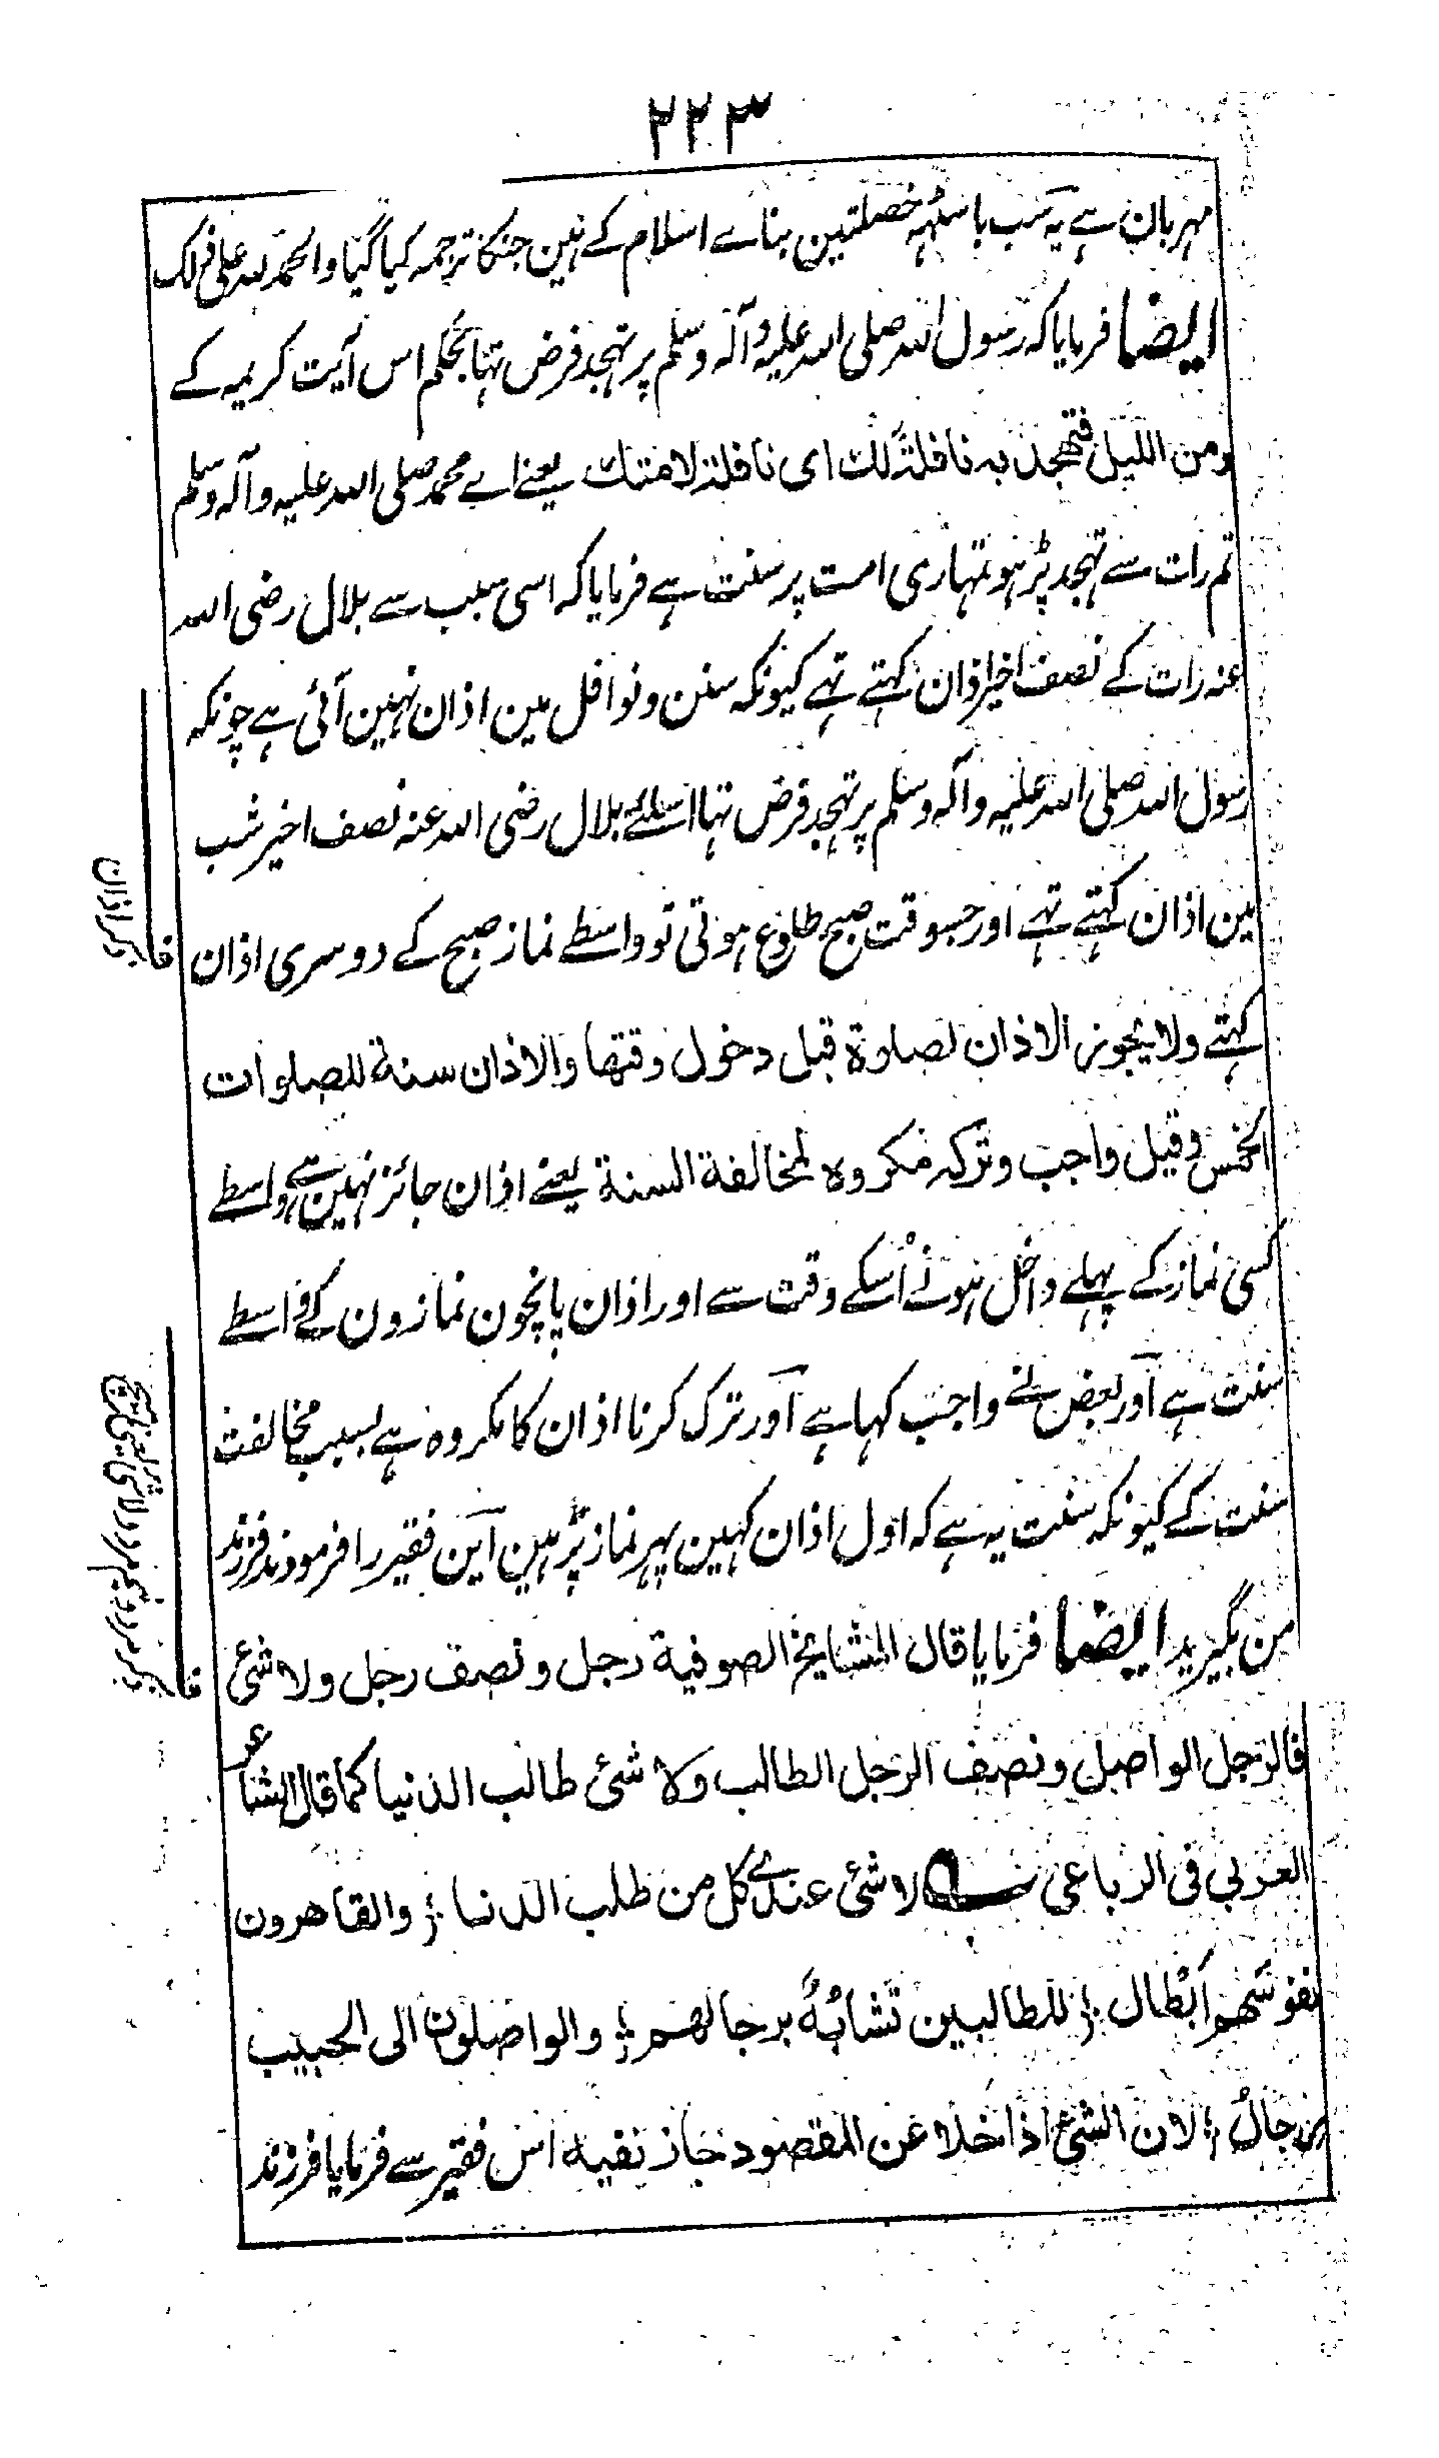 ۲۲۳
مہربان ہے یہ سب باسٹہہ خصلتین بناے اسلام کے ہین جنکا ترجمہ کیا گیا والحمد لله علی ذلک
ایضا فرمایا کہ رسول الله صلی الله علیہ وآلہ وسلم پر تہجد فرض تہا بحکم اس آیت کریمہ کے
ومن اللیل فتهجد به نافلة لك ای نافلة لامتك یعنے اے محمد صلی الله علیہ وآلہ وسلم
تم رات سے تہجد پڑہو تمہاری امت پر سنت ہے فرمایا کہ اسی سبب سے بلال رضی الله
عنہ رات کے نصف اخیر اذان کہتے تہے کیونکہ سنن ونوافل مین اذان نہین آئی ہے چونکہ
رسول الله صلی الله علیہ وآلہ وسلم پر تہجد فرض تہا اسلئے بلال رضی الله عنہ نصف اخیر شب
مین اذان کہتے تہے اور جسوقت صبح طلوع ہوتی تو واسطے نماز صبح کے دوسری اذان
کہتے ولا یجوز الاذان لصلوة قبل دخول وقتها والاذان سنة للصلوات
الخمس وقیل واجب وترکہ مکروہ لمخالفة السنة یعنے اذان جائز نہین ہے واسطے
کسی نماز کے پہلے داخل ہونے اُسکے وقت سے اور اذان پانچون نمازون کے واسطے
سنت ہے اور بعض نے واجب کہا ہے اور ترک کرنا اذان کا مکروہ ہے بسبب مخالفت
سنت کے کیونکہ سنت یہ ہے کہ اول اذان کہین پہر نماز پڑہین این فقیر را فرمودند فرزند
من بگیرید ایضا فرمایا قال المشایخ الصوفیة رجل ونصف رجل ولا شئ
فالرجل الواصل ونصف الرجل الطالب ولا شئ طالب الدنیا کما قال الشاعر
العربی فی الرباعی لا شئ عندے کل من طلب الدنیا ؛ والقاهرون
نفوسهم ابطال ؛ للطالبین تشابُهٌ برجالهم ؛ والواصلون الی الحبیب
رجالٌ ؛ لان الشئ اذا خلا عن المقصود جاز نفیه اس فقیر سے فرمایا فرزند
ذکر اذان